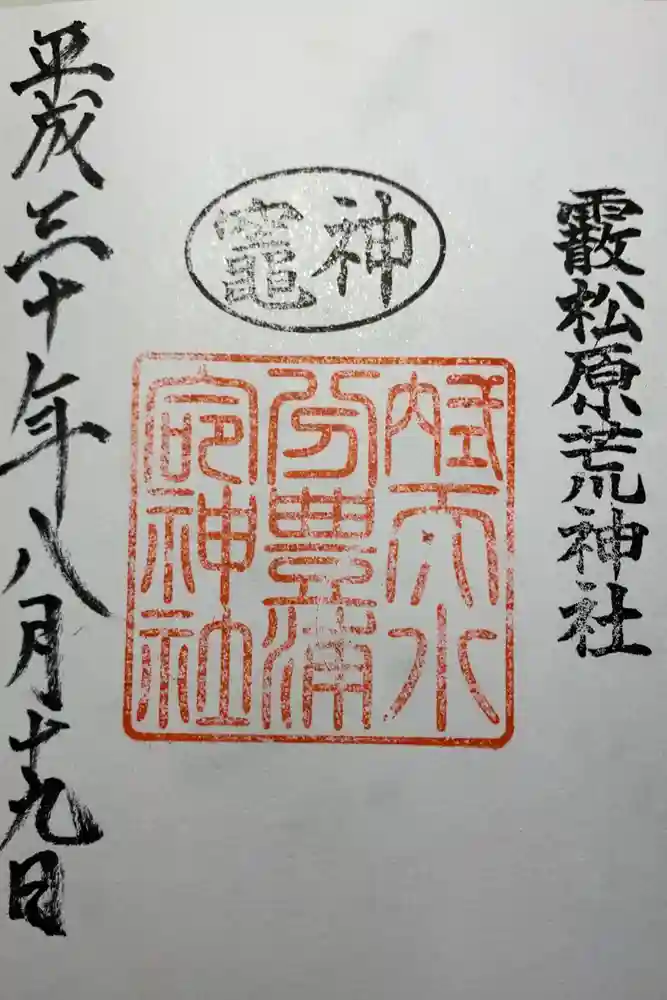 霰松原荒神社
神竈
式内天水
分豊浦
命神社
平成三十年八月十九日